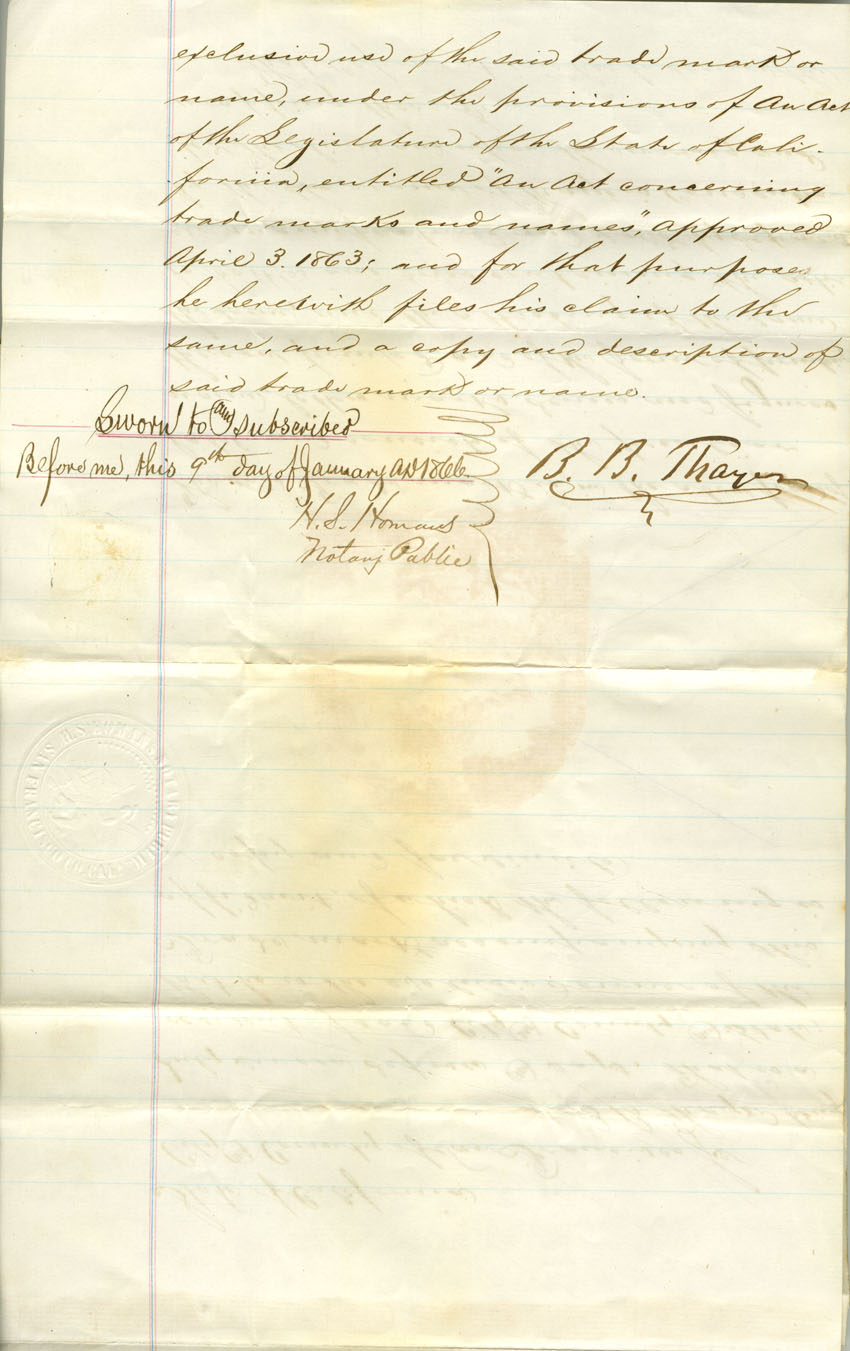 exclusive use of the said trade mark or
name, under the provisions of An Act
of the Legislature of the State of Cali-
fornia, entitled "An Act concerning
trade marks and names", approved
April 3. 1863; and for that purpose
he herewith files his claim to the
same, and a copy and description of
said trade mark or name.
Sworn to and subscribed
Before me, this 9th day of January AD 1866.
B. B. Thayer
H. S. Homans
Notary Public